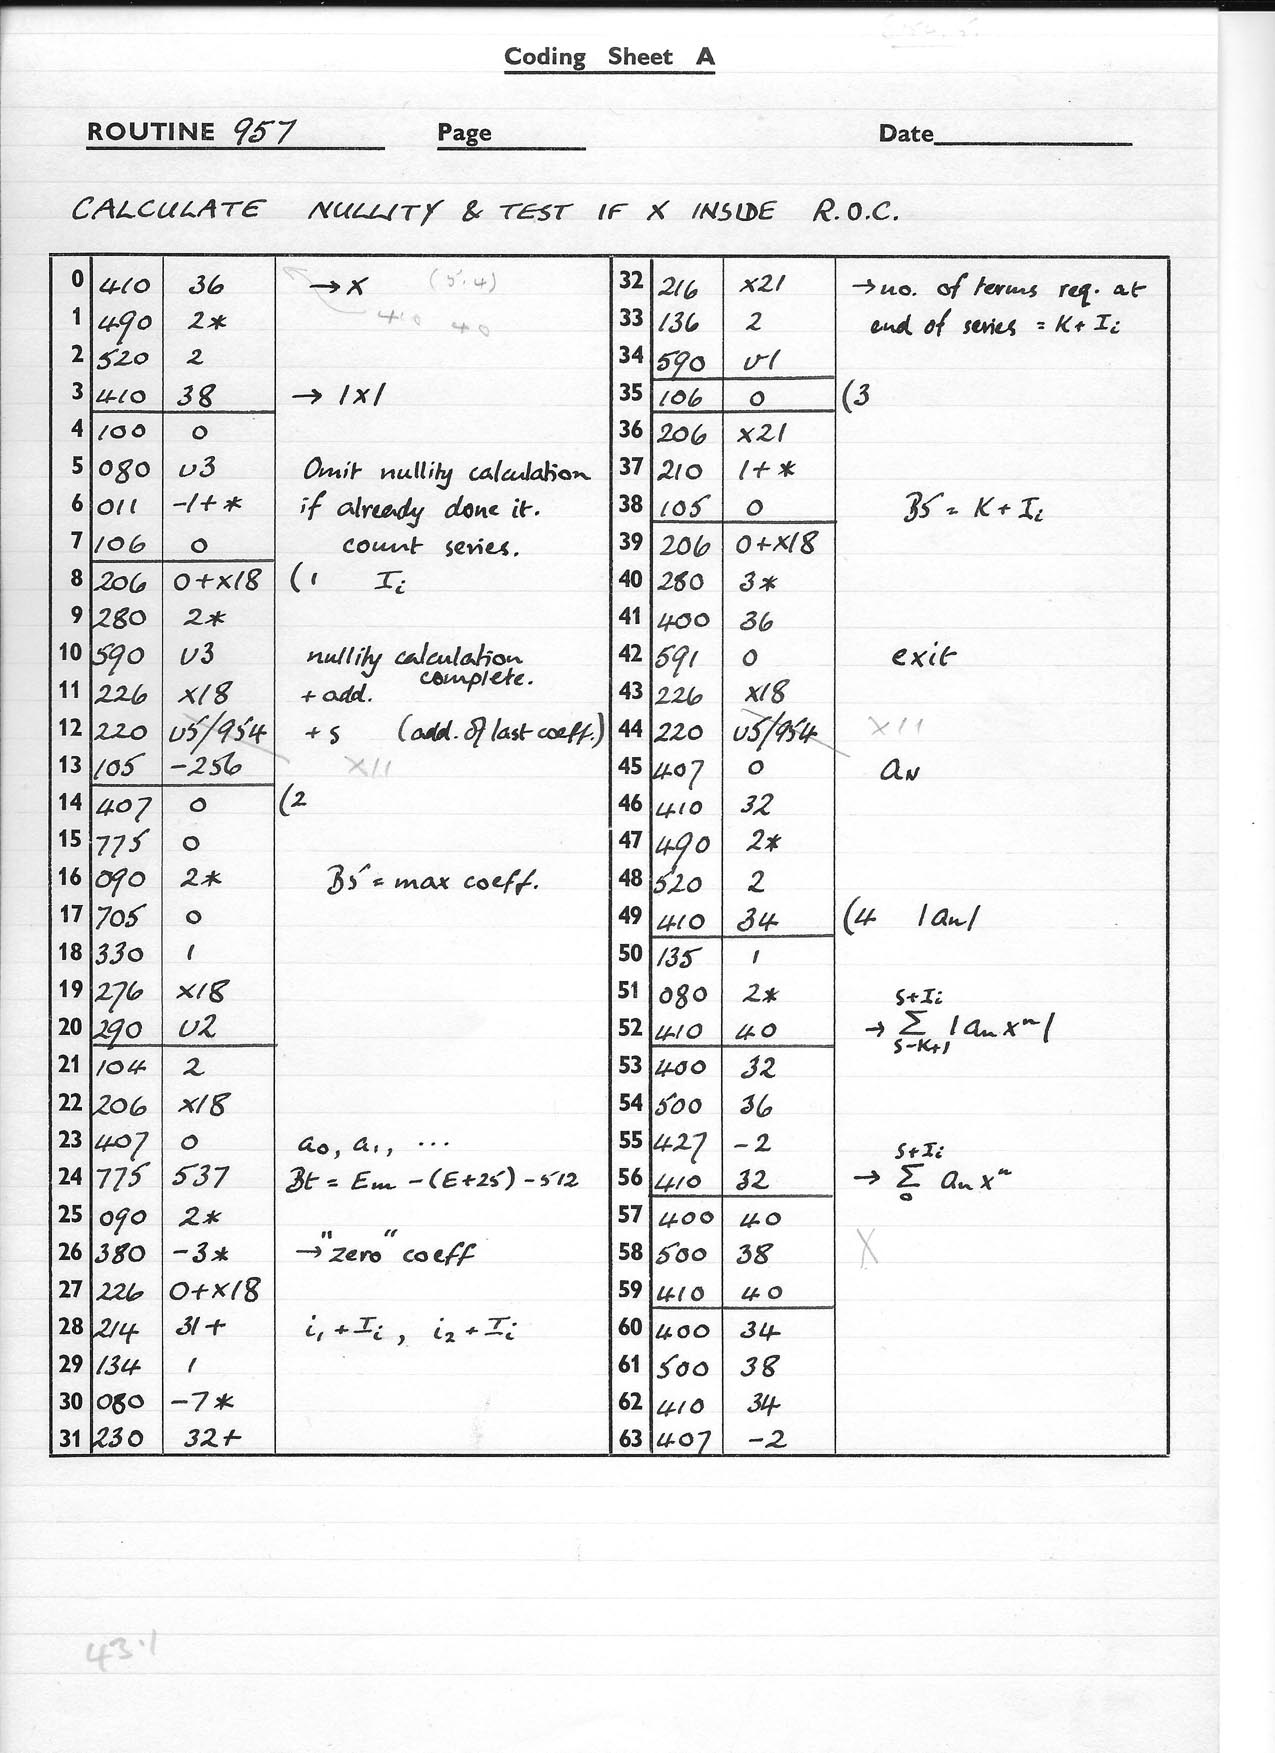 Coding Sheet A
ROUTINE 957 Page Date
CALCULATE NULLITY & TEST IF X INSIDE R.O.C.
0 410 36 → x (5.4)
1 490 2* 410 40
2 520 2
3 410 38 → |x|
4 100 0
5 080 v3 Omit nullity calculation
6 011 -1+* if already done it.
7 106 0 count series.
8 206 0+x18 (1 Ii
9 280 2*
10 590 v3 nullity calculation
complete.
11 226 x18 + add.
12 220 v5/954 + s (add. of last coeff.)
13 105 -256 x11
14 407 0 (2
15 775 0
16 090 2* B5 = max coeff.
17 705 0
18 330 1
19 276 x18
20 290 v2
21 104 2
22 206 x18
23 407 0 a0, a1, ...
24 775 537 Bt = Em - (E+25) - 512
25 090 2*
26 380 -3* → "zero" coeff
27 226 0+x18
28 214 31+ i1 + Ii, i2 + Ii
29 134 1
30 080 -7*
31 230 32+
32 216 x21 → no. of terms req. at
33 136 2 end of series = K + Ii
34 590 v1
35 106 0 (3
36 206 x21
37 210 1+*
38 105 0 B5 = K + Ii
39 206 0+x18
40 280 3*
41 400 36
42 591 0 exit
43 226 x18
44 220 v5/954 x11
45 407 0 aN
46 410 32
47 490 2*
48 520 2
49 410 34 (4 |an|
50 135 1
51 080 2* s+Ii
52 410 40 → Σ |an xⁿ|
s-K+1
53 400 32
54 500 36
55 427 -2 s+Ii
56 410 32 → Σ an xⁿ
0
57 400 40
58 500 38 X
59 410 40
60 400 34
61 500 38
62 410 34
63 407 -2
43.1